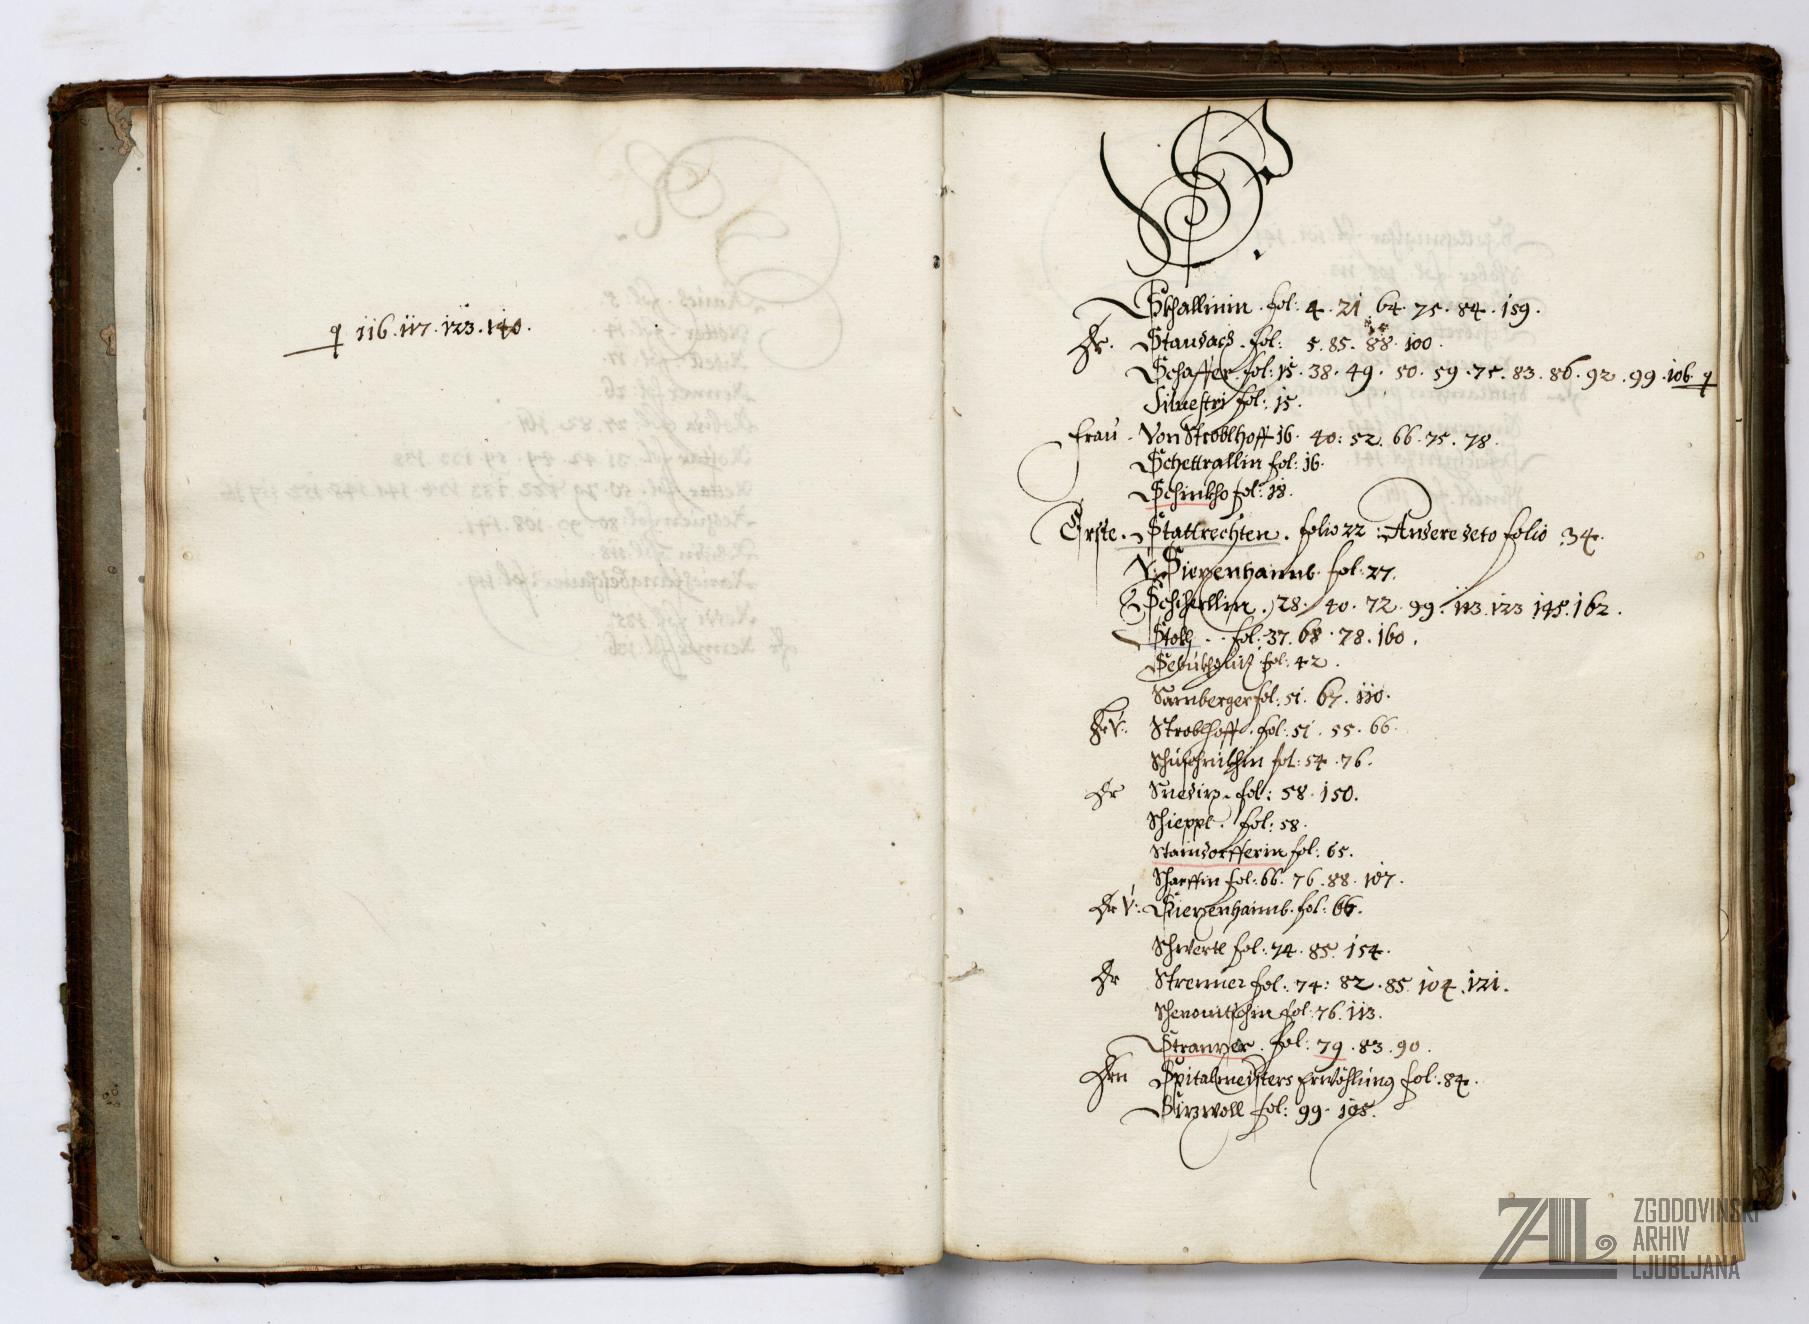 116. 117. 123. 140.
S
Skhallinin. fol: 4. 21. 64. 75. 84. 159.
Hr. fol: 5. 85. 88. 100.
Schaffer. fol: 15. 38. 49. 50. 59. 75. 83. 86. 92. 99. 106.
Siluestri fol: 15.
Frau. Von Stroblhoff 16. 40: 52. 66. 75. 78.
Schettrallin fol: 16.
Schinkho fol: 18.
Erste. Stattrechten. folio 22: Andere deto folio 34.
V: fol: 27.
28. 40. 72. 99. 113. 123. 145. 162.
fol: 37. 68. 78. 160.
fol: 42.
Sambergerfol: 51. 67. 110.
Hr V: Stroblhoff. fol: 51. 55. 66.
fol: 54. 76.
Hr fol: 58. 150.
Schieppl. fol: 58.
Staindorfferin fol: 65.
Scharffin fol: 66. 76. 88. 107.
Hr V: fol: 66.
Schwertl fol: 74. 85. 154.
Hr Strenner fol: 74: 82. 85. 104. 121.
fol: 76. 113.
fol: 79. 83. 90.
Hrn Spitalmeisters Erwöhlung fol: 84.
fol: 99. 105.
ZAL
ZGODOVINSKI
ARHIV
LJUBLJANA